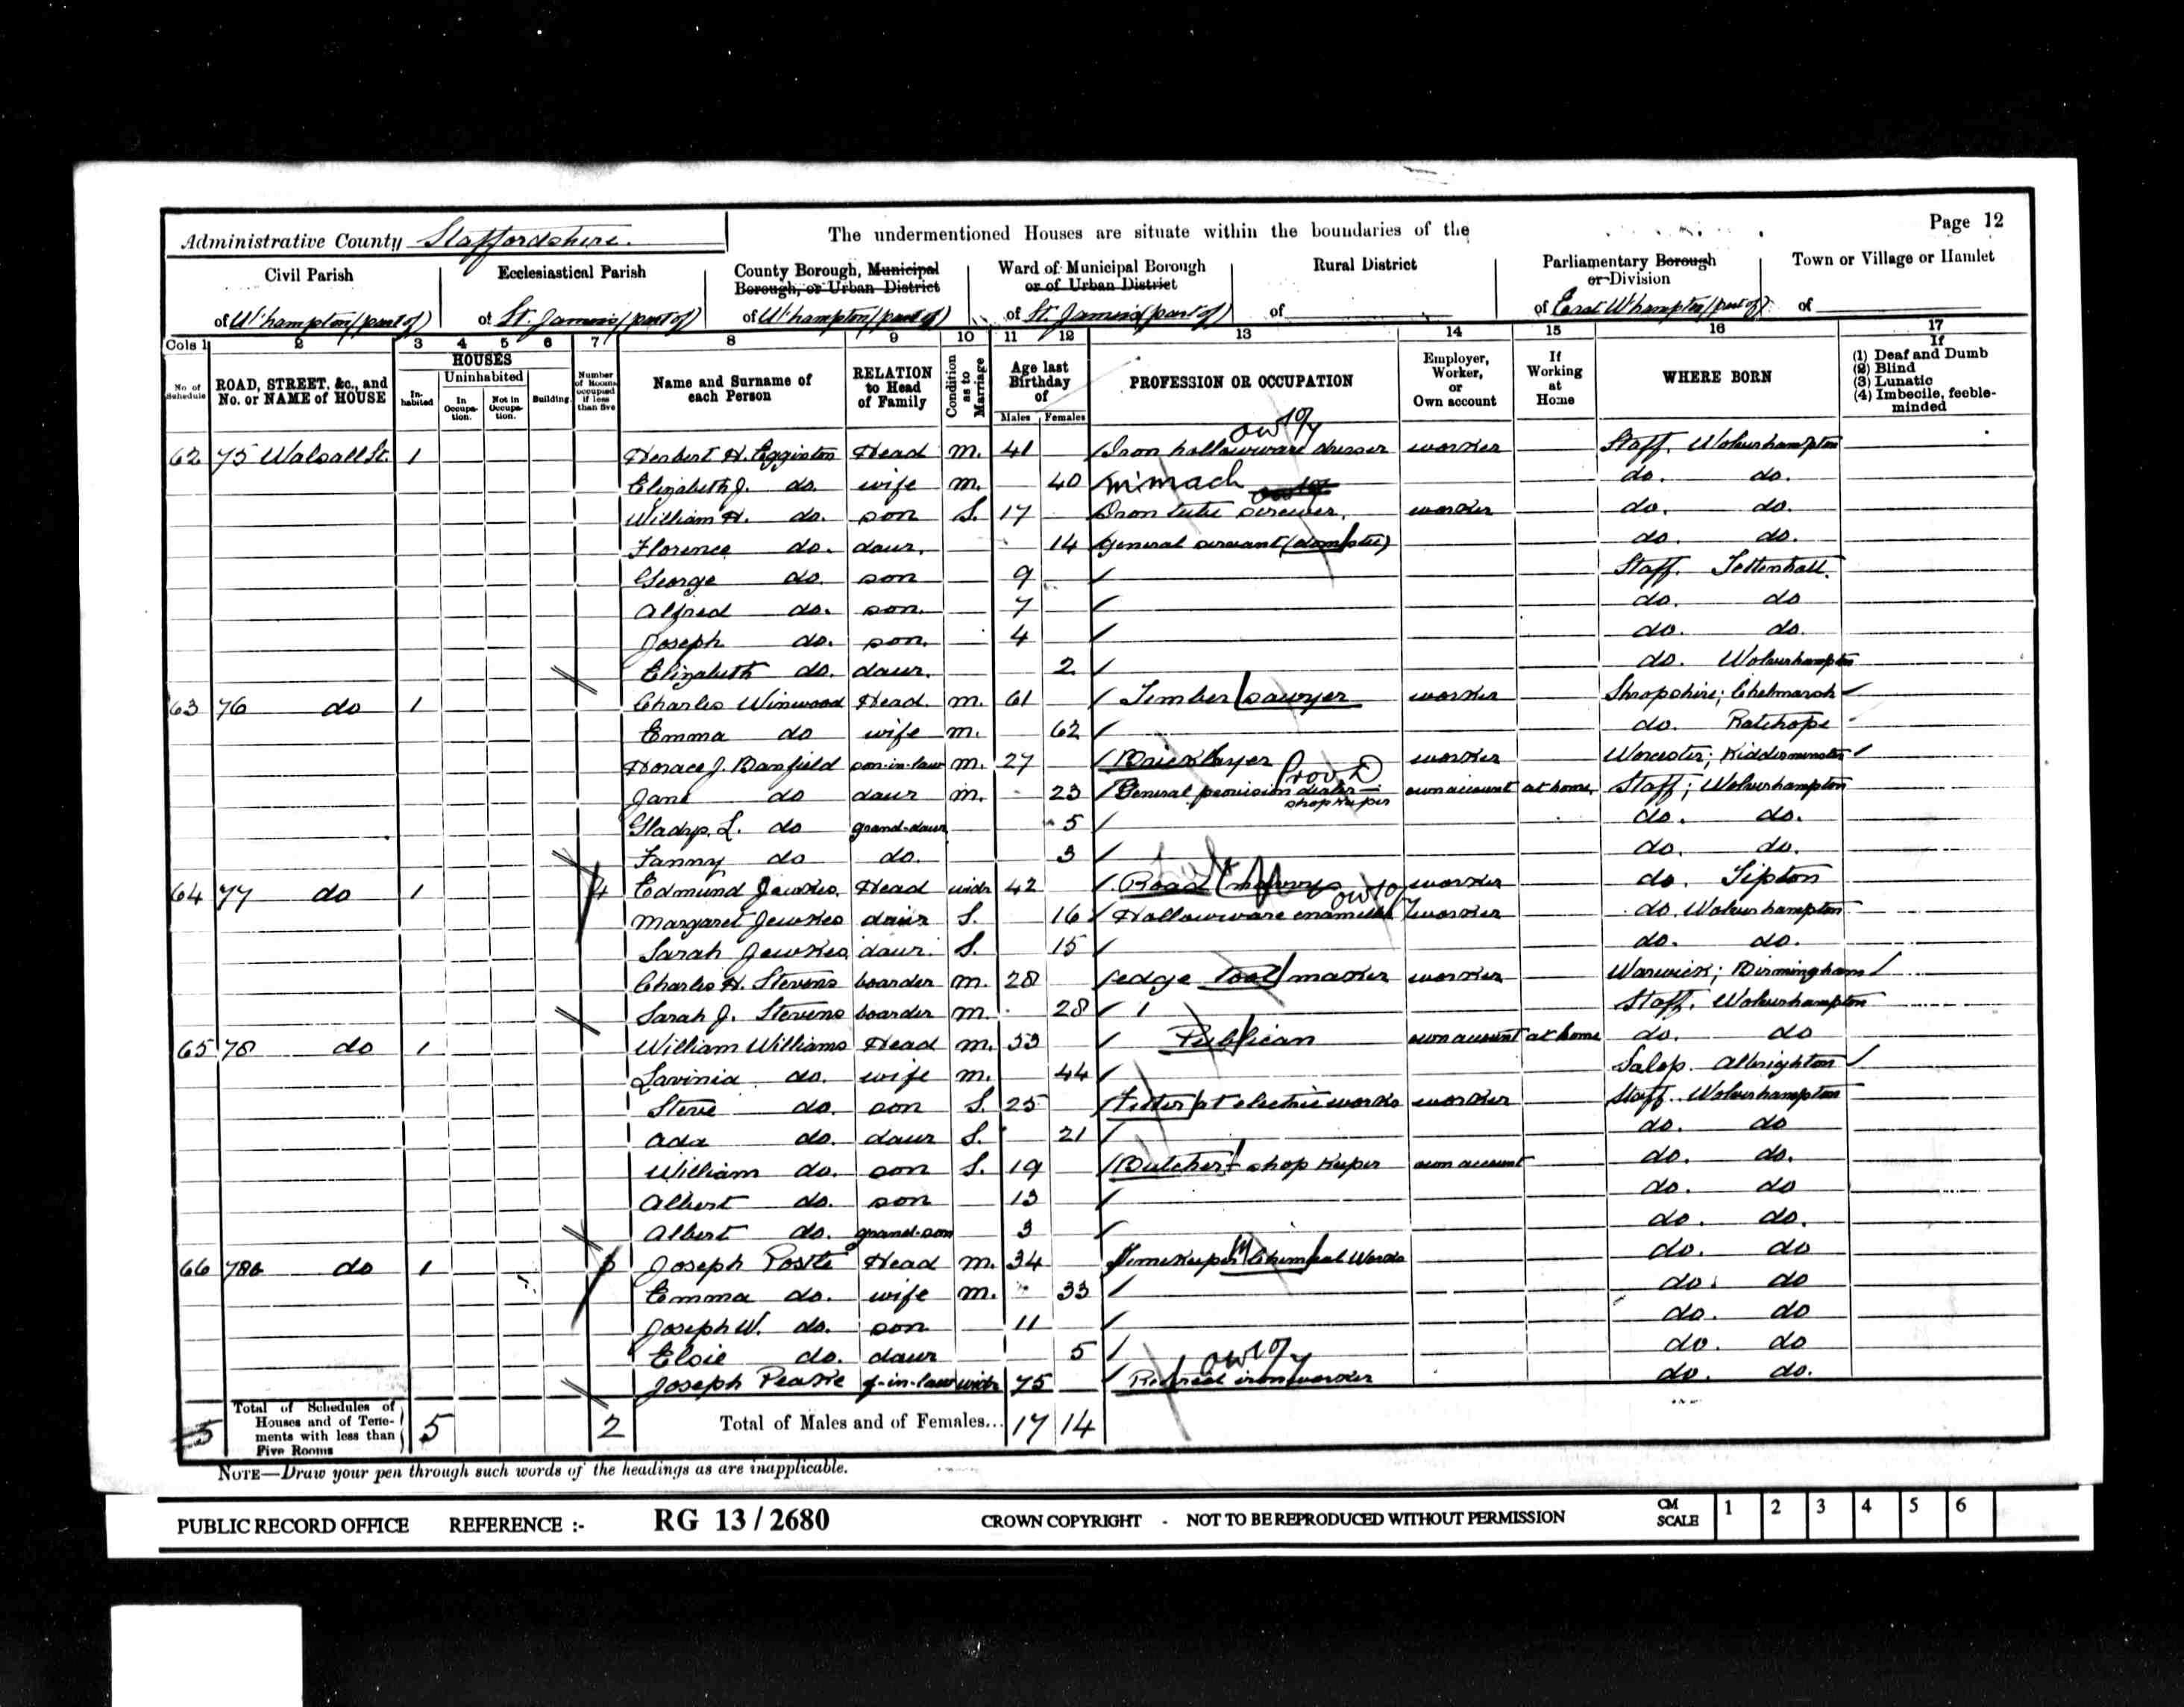 Page 12
Administrative County Staffordshire. The undermentioned Houses are situate within the boundaries of the
Civil Parish Ecclesiastical Parish County Borough, Municipal Borough, or Urban District Ward of Municipal Borough or of Urban District Rural District Parliamentary Borough or Division Town or Village or Hamlet
of W'hampton (part of) of St. James's (part of) of W'hampton (part of) of St. James's (part of) of of East W'hampton (part of) of
Cols 1 2 3 4 5 6 7 8 9 10 11 12 13 14 15 16 17
No of Schedule ROAD, STREET, &c., and No. or NAME of HOUSE HOUSES Inhabited Uninhabited In Occupation. Not in Occupation. Building. Number of Rooms occupied if less than five Name and Surname of each Person RELATION to Head of Family Condition as to Marriage Age last Birthday of Males Females PROFESSION OR OCCUPATION Employer, Worker, or Own account If Working at Home WHERE BORN If (1) Deaf and Dumb (2) Blind (3) Lunatic (4) Imbecile, feeble-minded
62 75 Walsall St. 1 Herbert H. Egginton Head m. 41 Iron hollowware dresser worker Staff. Wolverhampton
Elizabeth J. do. wife m. 40 do. do.
William H. do. son S. 17 Iron tube screwer. worker do. do.
Florence do. daur. 14 General servant (domestic) do. do.
George do. son 9 Staff. Tettenhall.
Alfred do. son. 7 do. do
Joseph do. son. 4 do. do.
Elizabeth do. daur. 2 do. Wolverhampton
63 76 do 1 Charles Winwood Head. m. 61 Timber sawyer worker Shropshire; Chelmarsh
Emma do wife m. 62 do. Ratchope
Horace J. Banfield son-in-law m. 27 Bricklayer worker Worcester; Kidderminster
Jane do daur m. 23 General provision dealer - shop keeper own account at home. Staff; Wolverhampton
Gladys L. do grand-daur 5 do. do.
Fanny do do. 3 do. do.
64 77 do 1 4 Edmund Jewkes. Head widr 42 Road worker do. Tipton
Margaret Jewkes daur S. 16 Hollowware enameller worker do. Wolverhampton
Sarah Jewkes daur. S. 15 do. do.
Charles H. Stevens boarder m. 28 edge tool maker worker Warwick; Birmingham
Sarah J. Stevens boarder m. 28 Staff. Wolverhampton
65 78 do 1 William Williams Head m. 53 Publican own account at home do. do
Lavinia do. wife m. 44 Salop. Albrighton
Steve do. son S. 25 Fitter at electric works worker Staff. Wolverhampton
Ada do. daur S. 21 do. do
William do. son S. 19 Butcher - shop keeper own account do. do.
Albert do. son 13 do. do
Albert do. grand-son 3 do. do.
66 78a do 1 Joseph Postle Head m. 34 Timekeeper Chemical Works do. do
Emma do. wife m. 33 do. do
Joseph W. do. son 11 do. do
Elsie do. daur 5 do. do
Joseph f-in-law widr 75 Retired iron worker do. do.
5 Total of Schedules of Houses and of Tenements with less than Five Rooms 5 2 Total of Males and of Females... 17 14
NOTE—Draw your pen through such words of the headings as are inapplicable.
PUBLIC RECORD OFFICE REFERENCE :- RG 13 / 2680 CROWN COPYRIGHT - NOT TO BE REPRODUCED WITHOUT PERMISSION CM SCALE 1 2 3 4 5 6